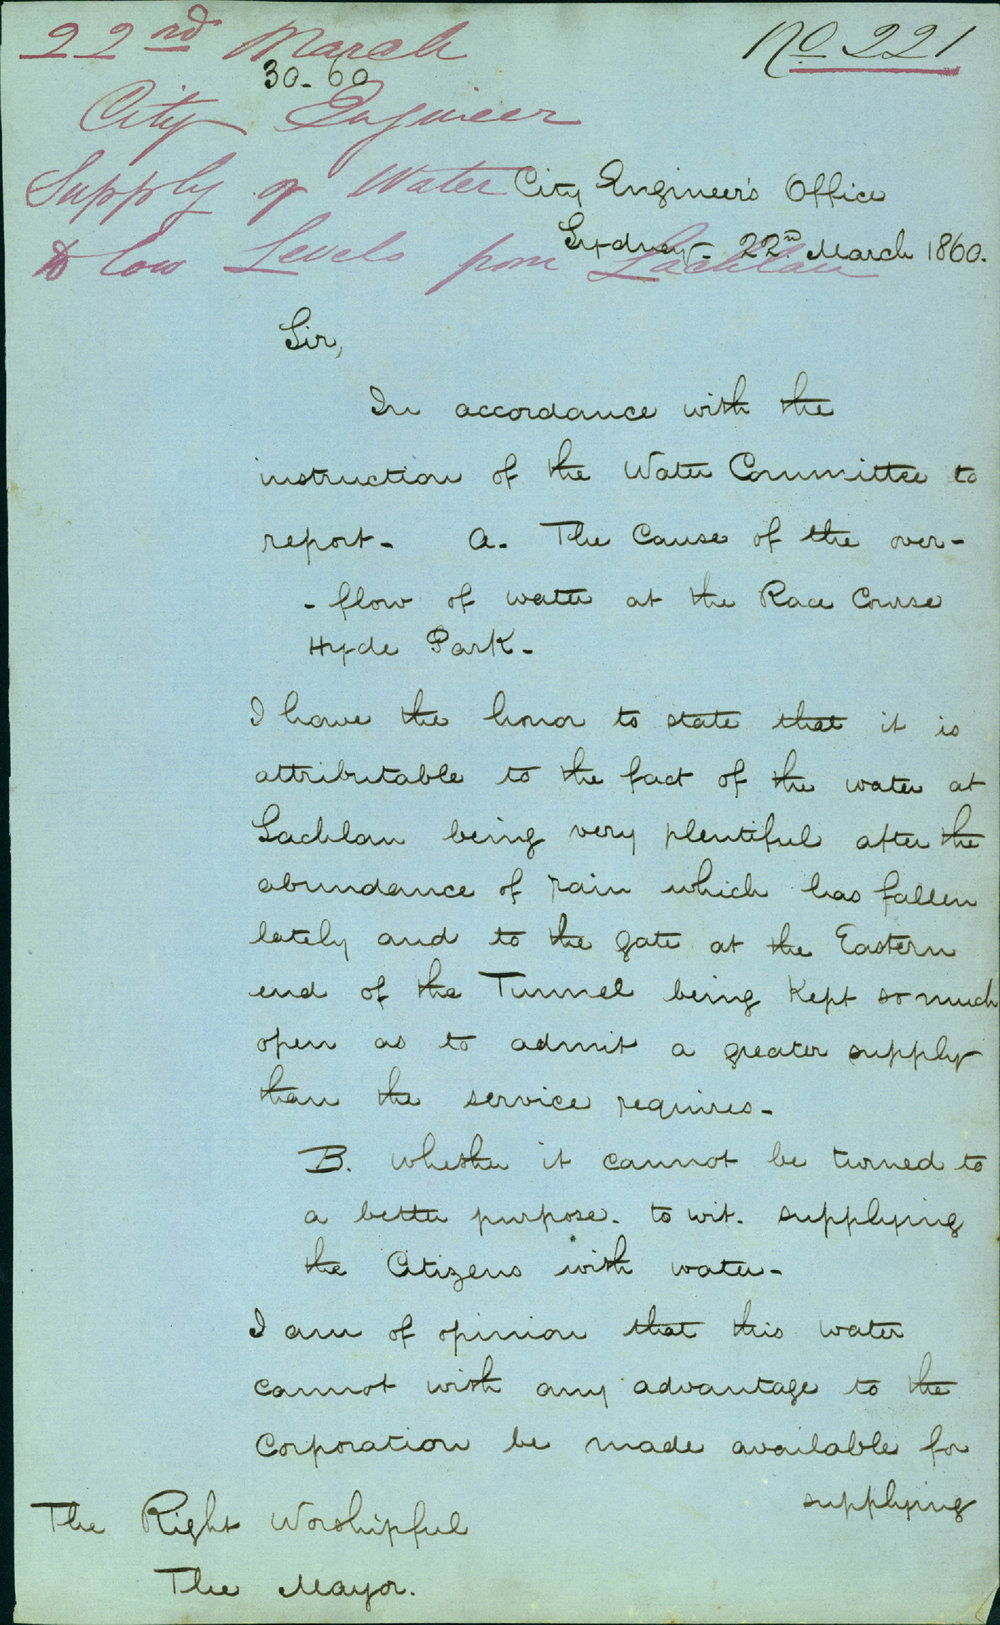 22nd March
No 221
30-60
City Engineer
Supply of Water
to low Levels from Lachlan
City Engineer's Office
Sydney - 22nd March 1860.
Sir,
In accordance with the
instruction of the Water Committee to
report - A. The Cause of the over-
- flow of water at the Race Course
Hyde Park -
I have the honor to state that it is
attributable to the fact of the water at
Lachlan being very plentiful after the
abundance of rain which has fallen
lately and to the gate at the Eastern
end of the Tunnel being Kept so much
open as to admit a greater supply
than the service requires -
B. Whether it cannot be turned to
a better purpose. to wit. supplying
the Citizens with water -
I am of opinion that this water
cannot with any advantage to the
Corporation be made available for
supplying
The Right Worshipful
The Mayor.